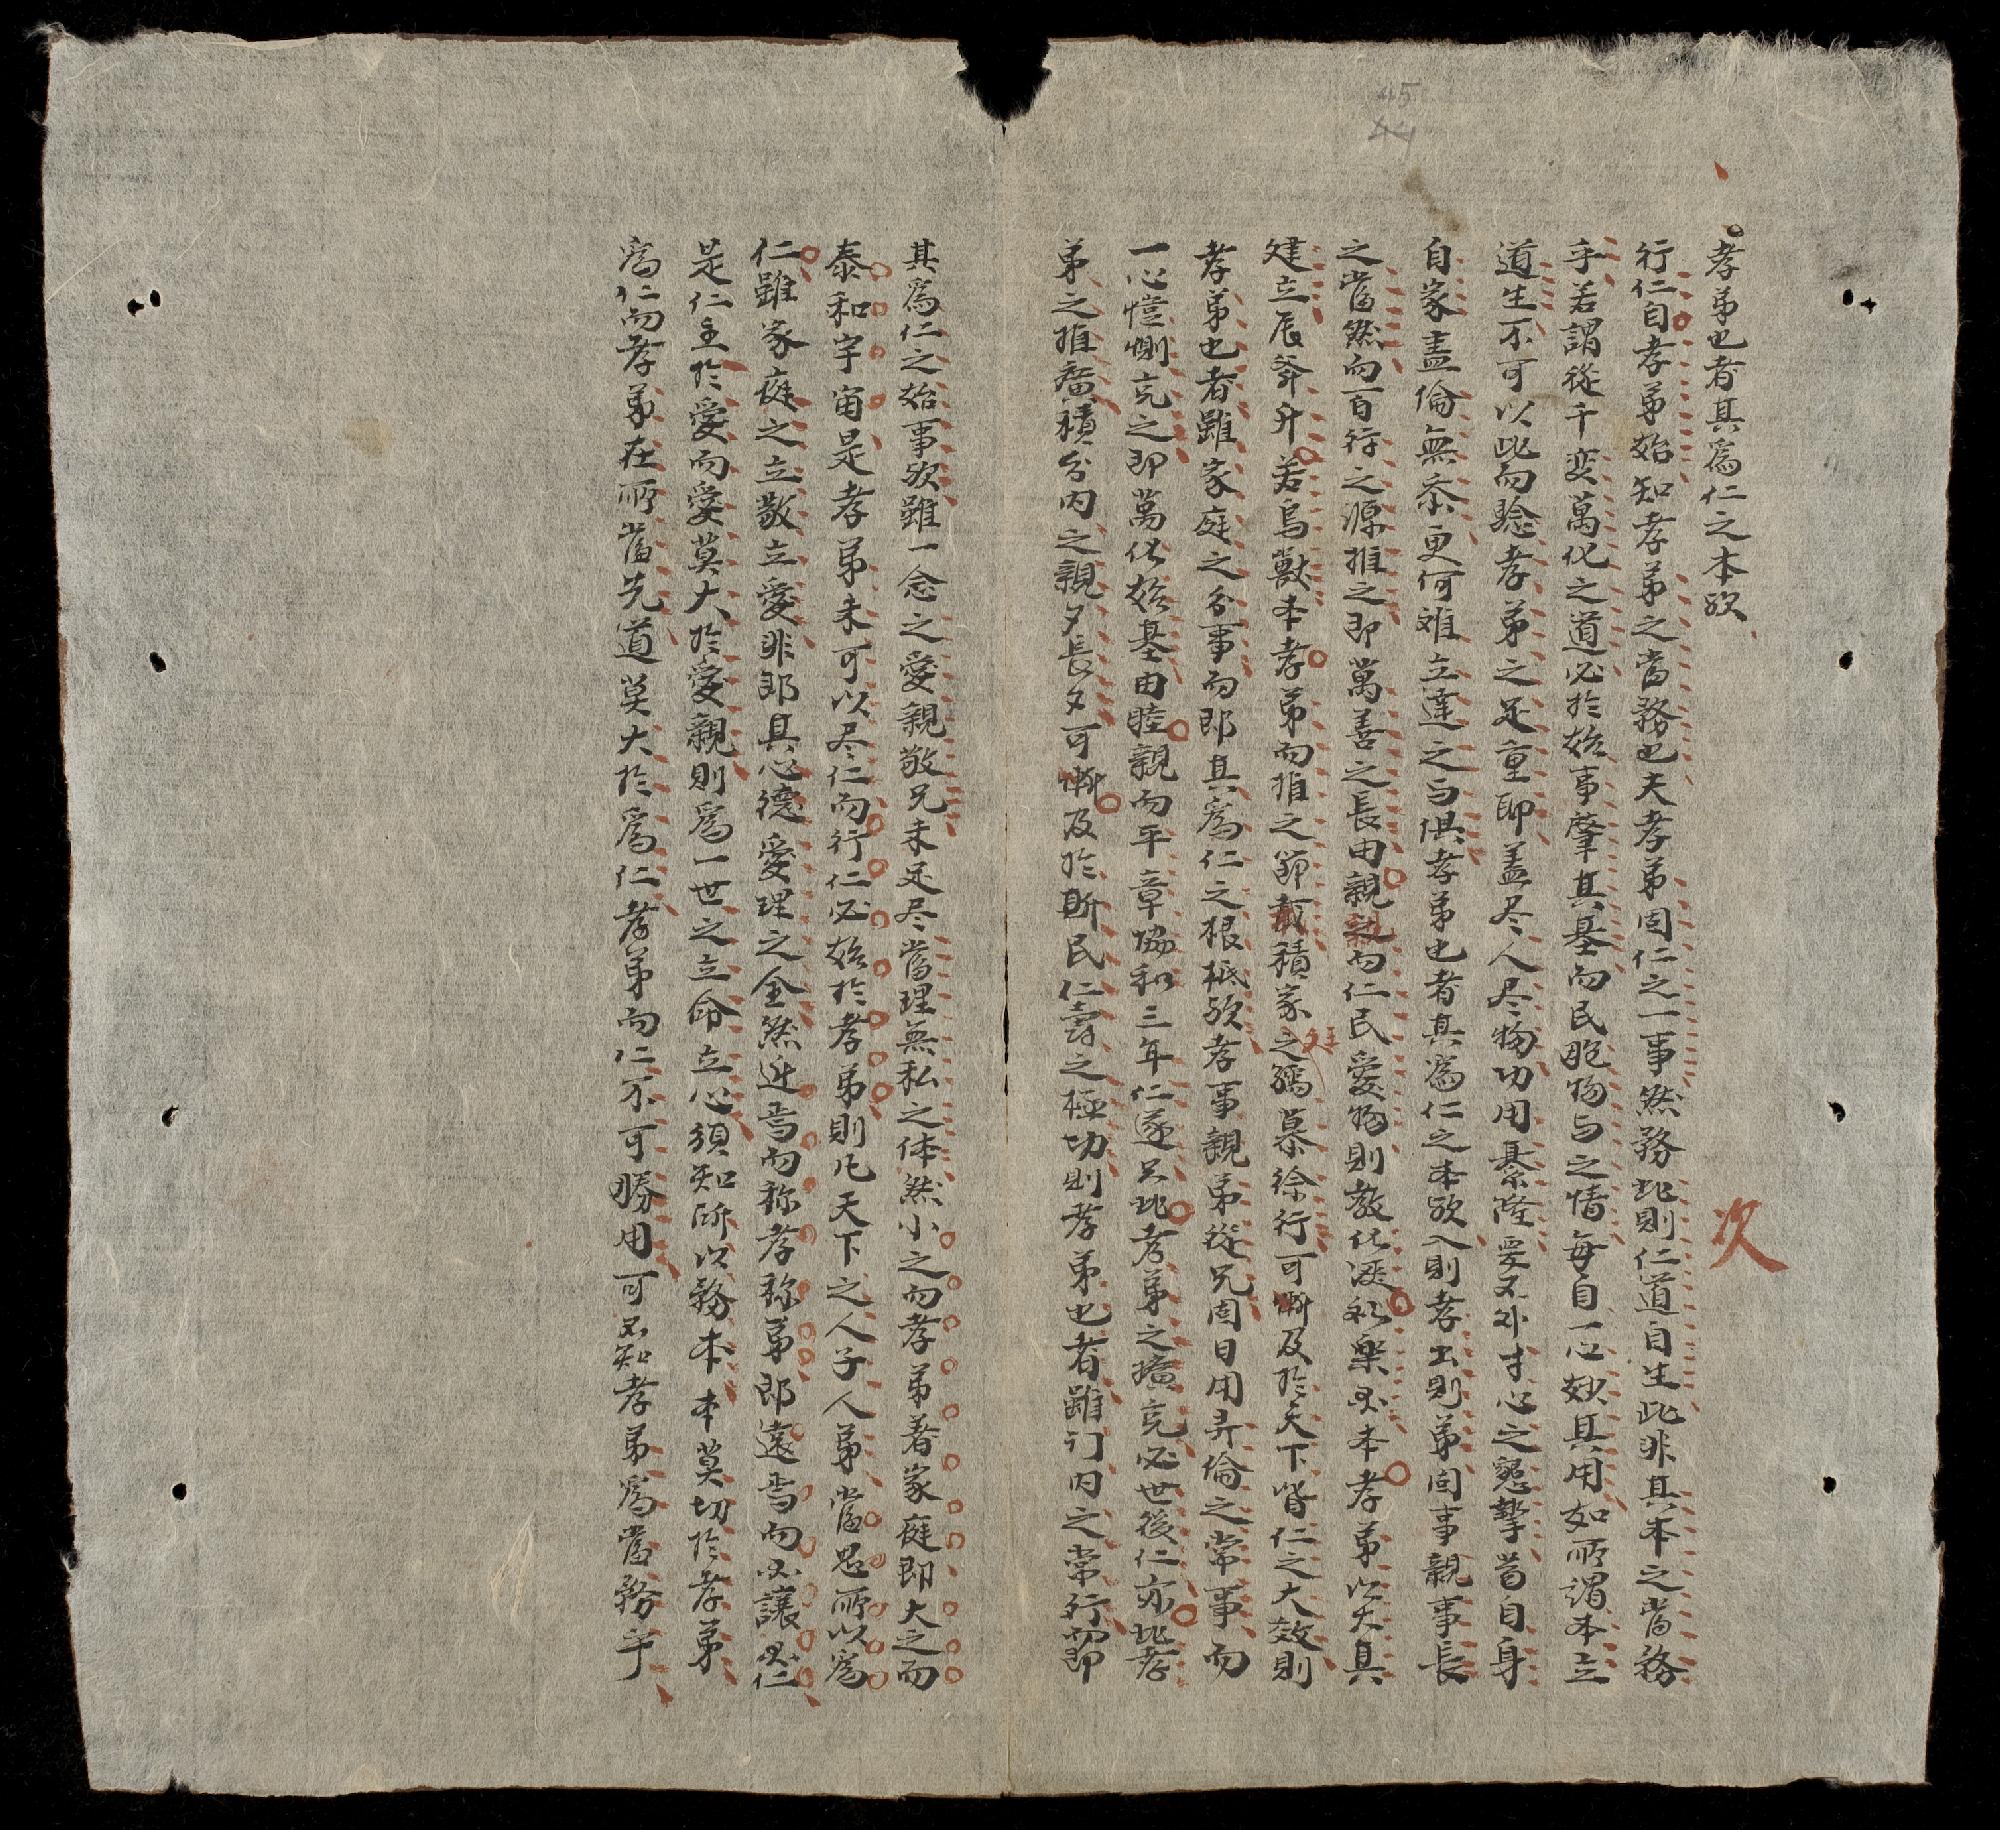 45
44
孝弟也者其為仁之本歟
次
行仁自孝弟始知孝弟之當務也夫孝弟固仁之一事然務此則仁道自生此非其本之當務
乎若謂從千变萬化之道必於始事肇其基而民胞物与之情每自一心妙其用如所謂本立
道生不可以此而驗孝弟之足重耶盖尽人尽物功用綦隆要不外寸心之懇摯苟自身
自家盡倫無忝更何难立達之与俱孝弟也者其為仁之本歟入則孝出則弟固事親事長
之當然而百行之源推之即萬善之長由親親而仁民愛物則教化浹和樂必本孝弟以大其
建立辰斧升若鳥獸本孝弟而推之節裁積家之孺慕徐行可漸及於天下皆仁之大效則
文王
孝弟也者雖家庭之分事而即其為仁之根柢歟孝事親弟從兄固日用彛倫之常事而
一心愷惻充之即萬化始基由睦親而平章協和三年仁遂只此孝弟之擴充必世後仁亦此孝
弟之推廣積分內之親夕長夕可漸及於斯民仁壽之極功則孝弟也者雖门内之常行而即
其為仁之始事欤雖一念之愛親敬兄未足尽當理無私之体然小之而孝弟著家庭即大之而
泰和宇宙是孝弟未可以尽仁而行仁必始於孝弟則凡天下之人子人弟當思所以為
仁雖家庭之立敬立愛非即具心德愛理之全然近焉而称孝称弟即遠焉而必讓必仁
是仁主於愛而愛莫大於愛親則為一世之立命立心須知所以務本本莫切於孝弟
為仁而孝弟在所當先道莫大於為仁孝弟而仁不可勝用可不知孝弟為當務乎